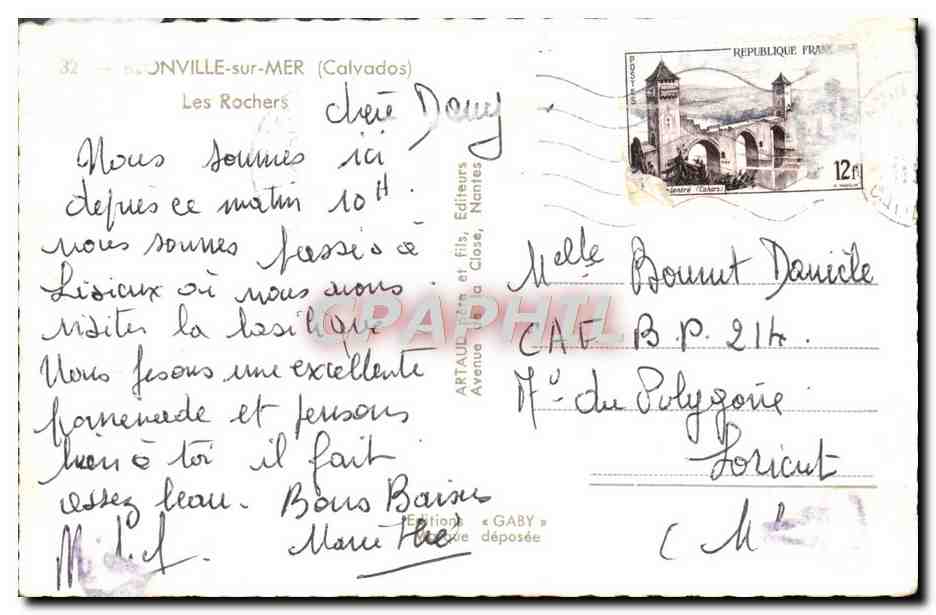 32 - BLONVILLE-sur-MER (Calvados)
Les Rochers
chère Dany
Nous sommes ici
depuis ce matin 10H
nous sommes passés à
Lisieux où nous avons
visiter la basilique
Nous fesons une excellente
promenade et pensons
bien à toi il fait
assez beau. Bons Baisers
Michel. Marie Thé
ARTAUD Père et fils, Editeurs
Avenue de la Close, Nantes
Editions « GABY »
Marque déposée
CPAPHIL
REPUBLIQUE FRANCAISE
POSTES
12f
Valentré (Cahors)
Melle Danièle
CAF B.P. 214.
du Polygone
Lorient
(Mb